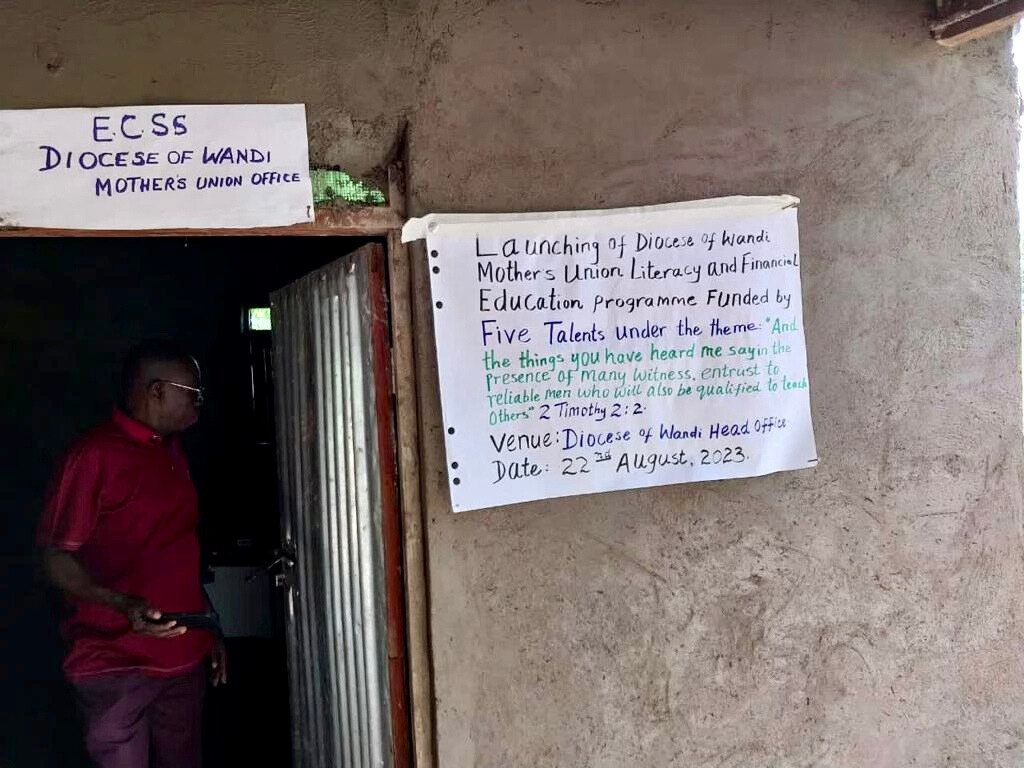 E.C.S S
DIOCESE OF WANDI
MOTHER'S UNION OFFICE
Launching of Diocese of Wandi
Mother's Union Literacy and Financial
Education programme Funded by
Five Talents under the theme: "And
the things you have heard me say in the
presence of many witness, entrust to
reliable men who will also be qualified to teach
Others" 2 Timothy 2:2.
Venue: Diocese of Wandi Head Office
Date: 22nd August, 2023.